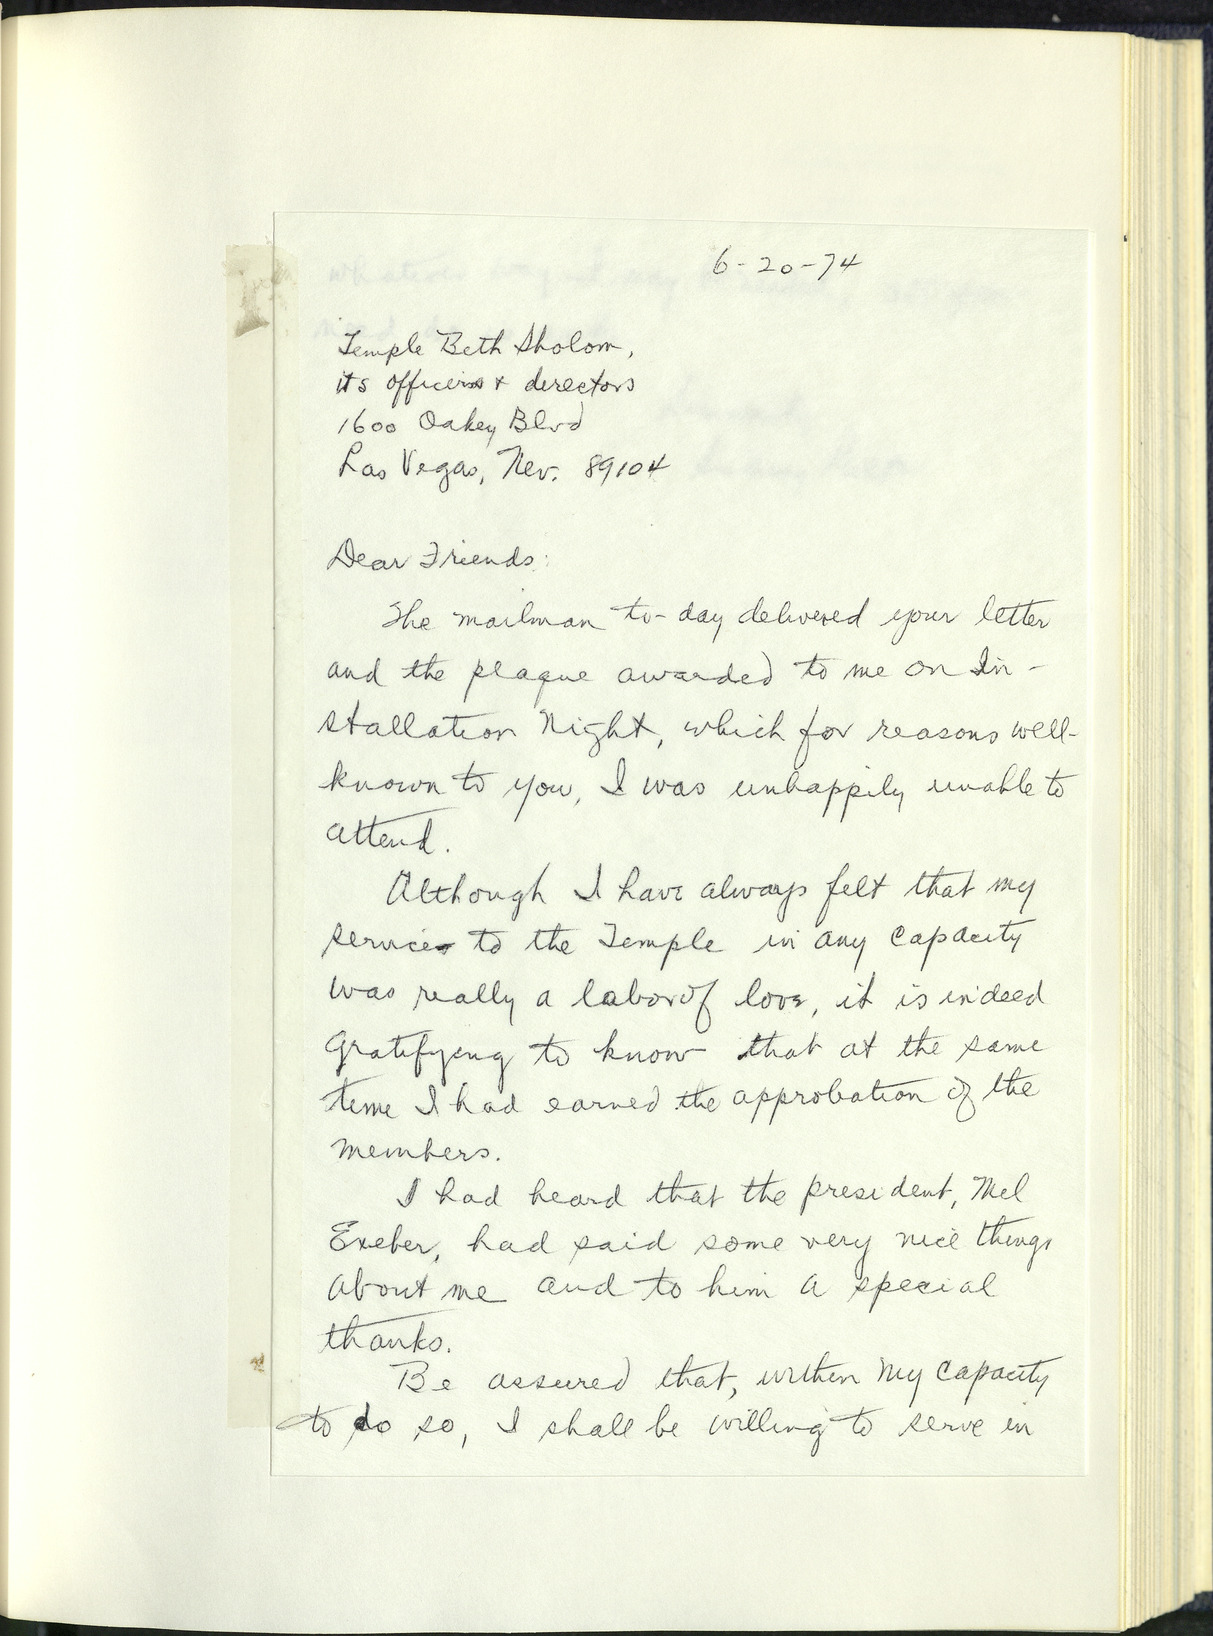 6-20-74
Temple Beth Sholom,
its officers & directors
1600 Oakey Blvd
Las Vegas, Nev. 89104
Dear Friends:
The mailman to-day delivered your letter
and the plaque awarded to me on In-
stallation Night, which for reasons well-
known to you, I was unhappily unable to
attend.
Although I have always felt that my
services to the Temple in any capacity
was really a labor of love, it is indeed
gratifying to know that at the same
time I had earned the approbation of the
members.
I had heard that the president, Mel
Exeber, had said some very nice things
about me and to him a special
thanks.
Be assured that, within my capacity
to do so, I shall be willing to serve in